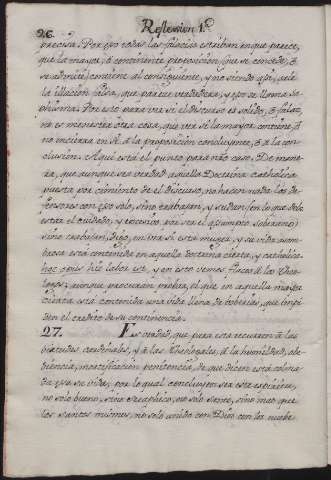 26. Reflexion 1.ª
precisa. Por eso todas las falacias estriban en que parece,
que la mayor, ò continente proposicion (que se concede, ò
se admite) contiene al consiguiente, y no siendo assi, sale
la illacion falsa, que parece verdadera, y esso se llama so-
phisma. Por esto para ver si el discurso es solido, ò falaz,
no es menester otra cosa, que ver si la mayor contiene, ò
no encierra en sì à la proposicion consiguiente, ò à la con-
clusion. Aqui està el punto para nro caso. De mane-
ra, que aunque sea verdad aquella Doctrina catholica
puesta por cimiento de el discurso, no hacen nada los de-
fensores con eso solo, sino trabajan, y sudan (en lo que debe
estar el cuidado, y excesivo por ser el assumpto soberano)
sino trabajan, digo, en ver si esta muger, y su vida asom-
brosa està contenida en aquella doctrina cierta, y catholica.
hoc opus hic labor est, y en esto vemos flacos à los Theo-
logos; aunque procuran probar, el que en aquella mayor
cierta està contenida una vida llena de boberias, que impi-
den el credito de su continencia.
27. Es verdad, que para esta recurren à las
virtudes cardinales, y à las Theologales, à la humildad, obe-
diencia, mortificacion penitencia, de que dicen està colma-
da y su vida, por lo qual concluyen ser este espiritu,
no solo bueno, sino seraphico, no solo santo, sino mas que
los santos mismos, no solo unido con Dios con los nuebe